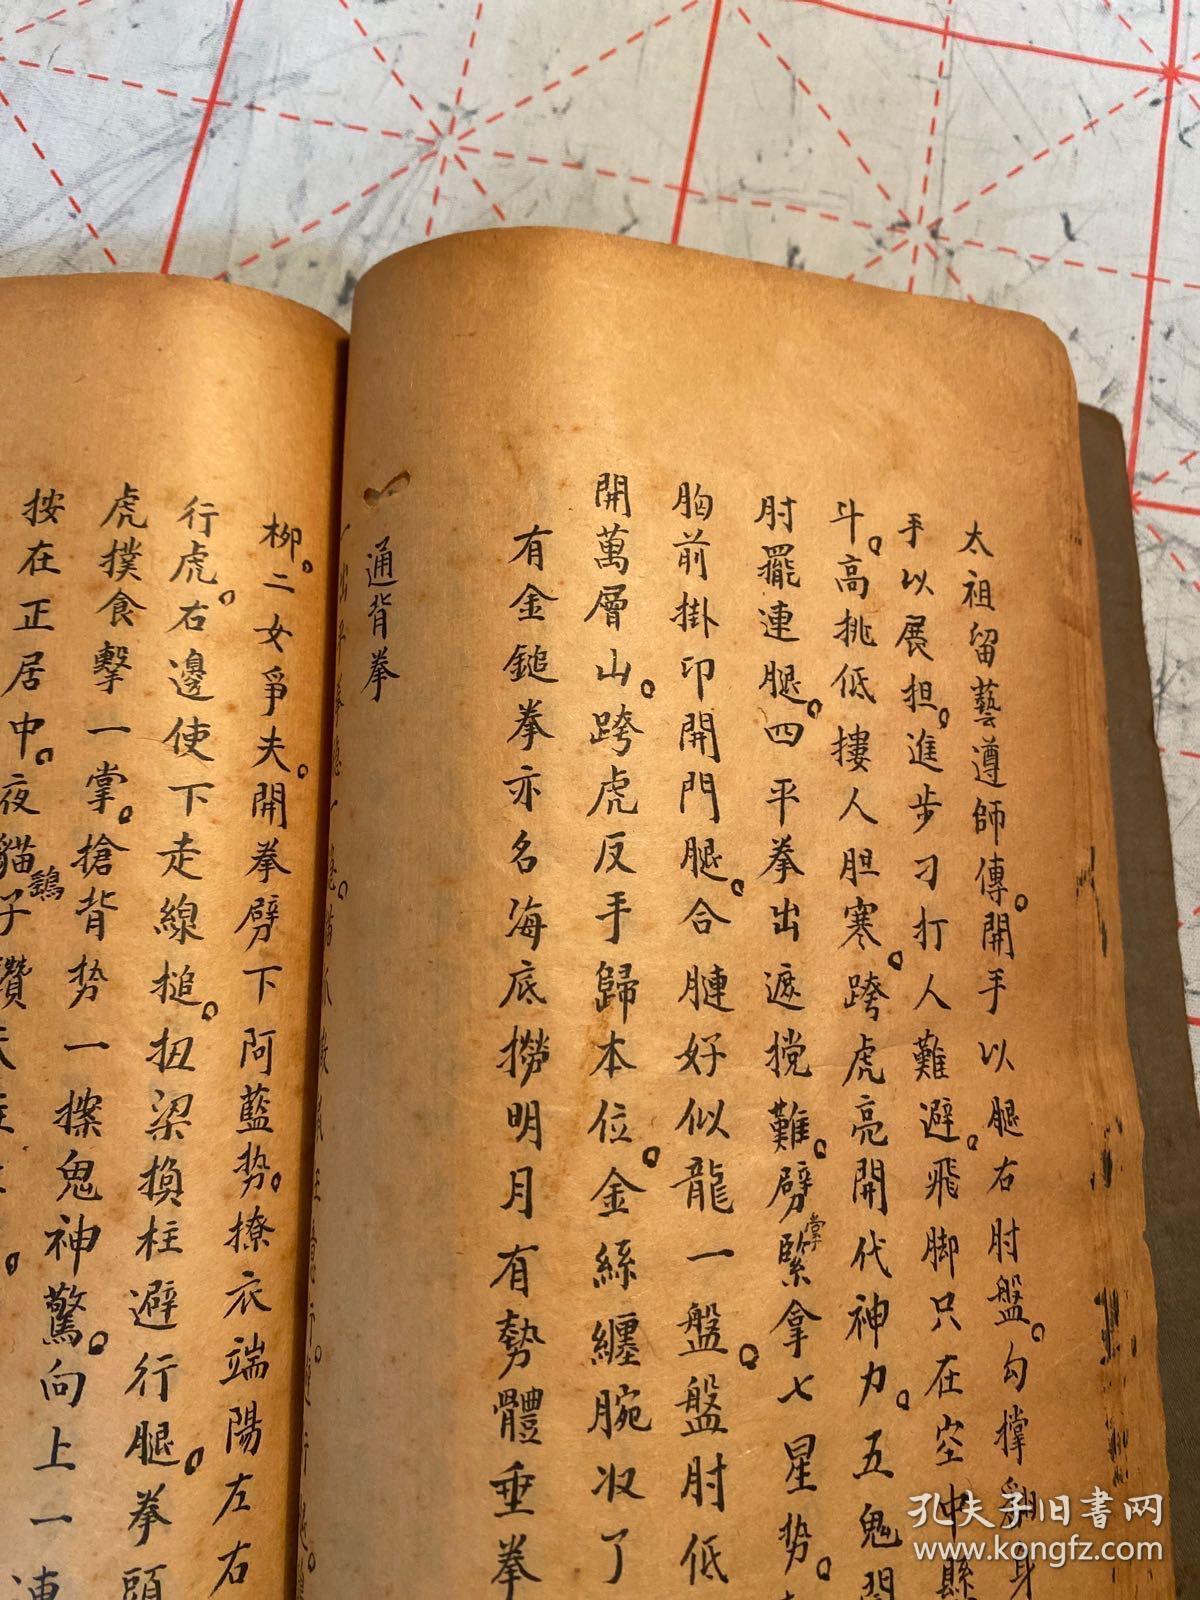 太祖留藝遵師傳。開手以腿右肘盤。勾撑翻身
手以展担。進步刁打人難避。飛脚只在空中懸
斗。高挑低摟人胆寒。跨虎亮開代神力。五鬼開
肘擺連腿。四平拳出遮搅難。劈緊拿七星势。
掌
胸前掛印開門腿。合腱好似龍一盤。盤肘低
開萬層山。跨虎反手歸本位。金絲纏腕収了
有金鎚拳亦名海底撈明月有勢體垂拳
通背拳
柳。二女爭夫。開拳劈下阿藍势。撩衣端陽左右
行虎。右邊使下走線搥。扭梁換柱避行腿。拳頭
虎撲食擊一掌。搶背势一擦鬼神驚。向上一連
按在正居中。夜貓子鑽天
鷂
孔夫子旧书网
www.kongfz.com